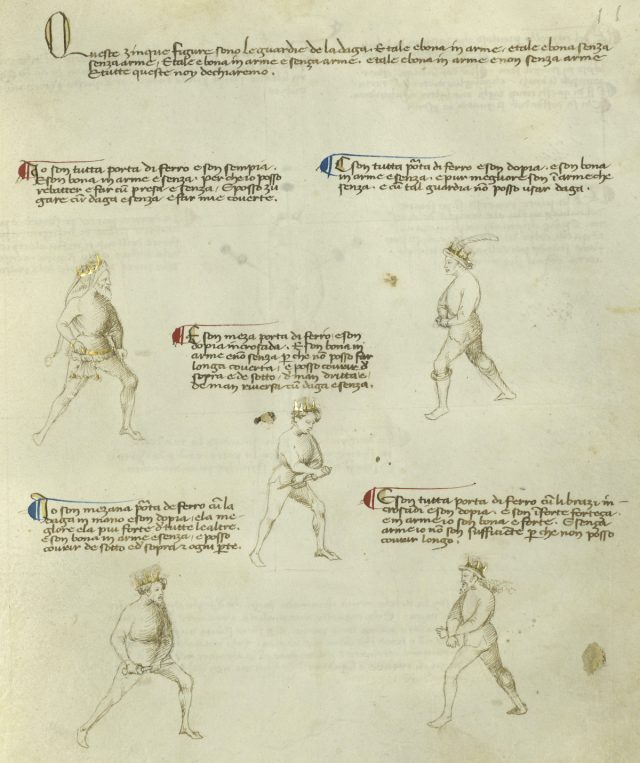 Queste zinque figure sono le guardie de la daga. E tale e bona in arme, e tale e bona senza
senza arme, E tale e bona in arme e senza arme. e tale e bona in arme e non senza arme
E tutte queste noy dechiaremo.
Io son tutta porta di ferro e son sempia.
E son bona in arme e senza. per che io posso
rebatter e far cum presa e senza, E posso zu
gare cum daga e senza e far mie coverte.
E son tutta porta di ferro e son dopia. e son bona
in arme e senza. e pur megliore son in arme che
senza. e cum tal guardia non posso usar daga.
E son meza porta di ferro, e son
dopia incrosada. E son bona in
arme e no senza per che non posso far
longa coverta, e posso covrir di
sopra e de sotto, di man dritta e
de man riversa cum daga e senza.
Io son mezana porta de ferro cum la
daga in mano e son dopia, e la me
gliore e la piu forte di tutte le altre.
E son bona in arme e senza, e posso
covrir de sotto ed sopra e ogni parte.
E son tutta porta di ferro cum li brazi in
crosadi e son dopia. e son in forte forteza.
e in arme io son bona e forte. E senza
arme io non son sufficiente per che non posso
covrir longo.